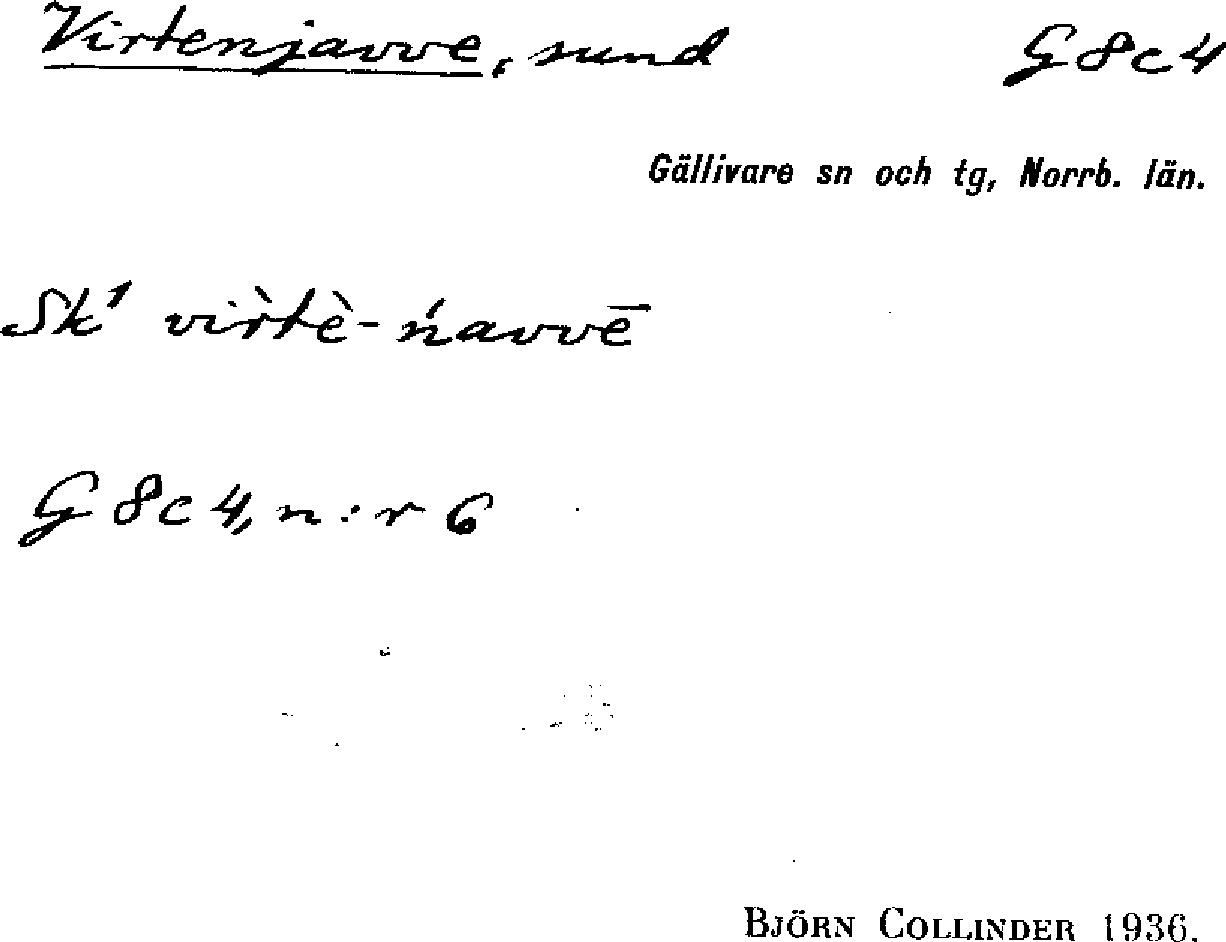 Virtenjavve, sund G 8 c 4
Gällivare sn och tg, Norrb. län.
Sk¹ vir̀tè-ńavvē
G 8 c 4, n:r 6
BJÖRN COLLINDER 1936.